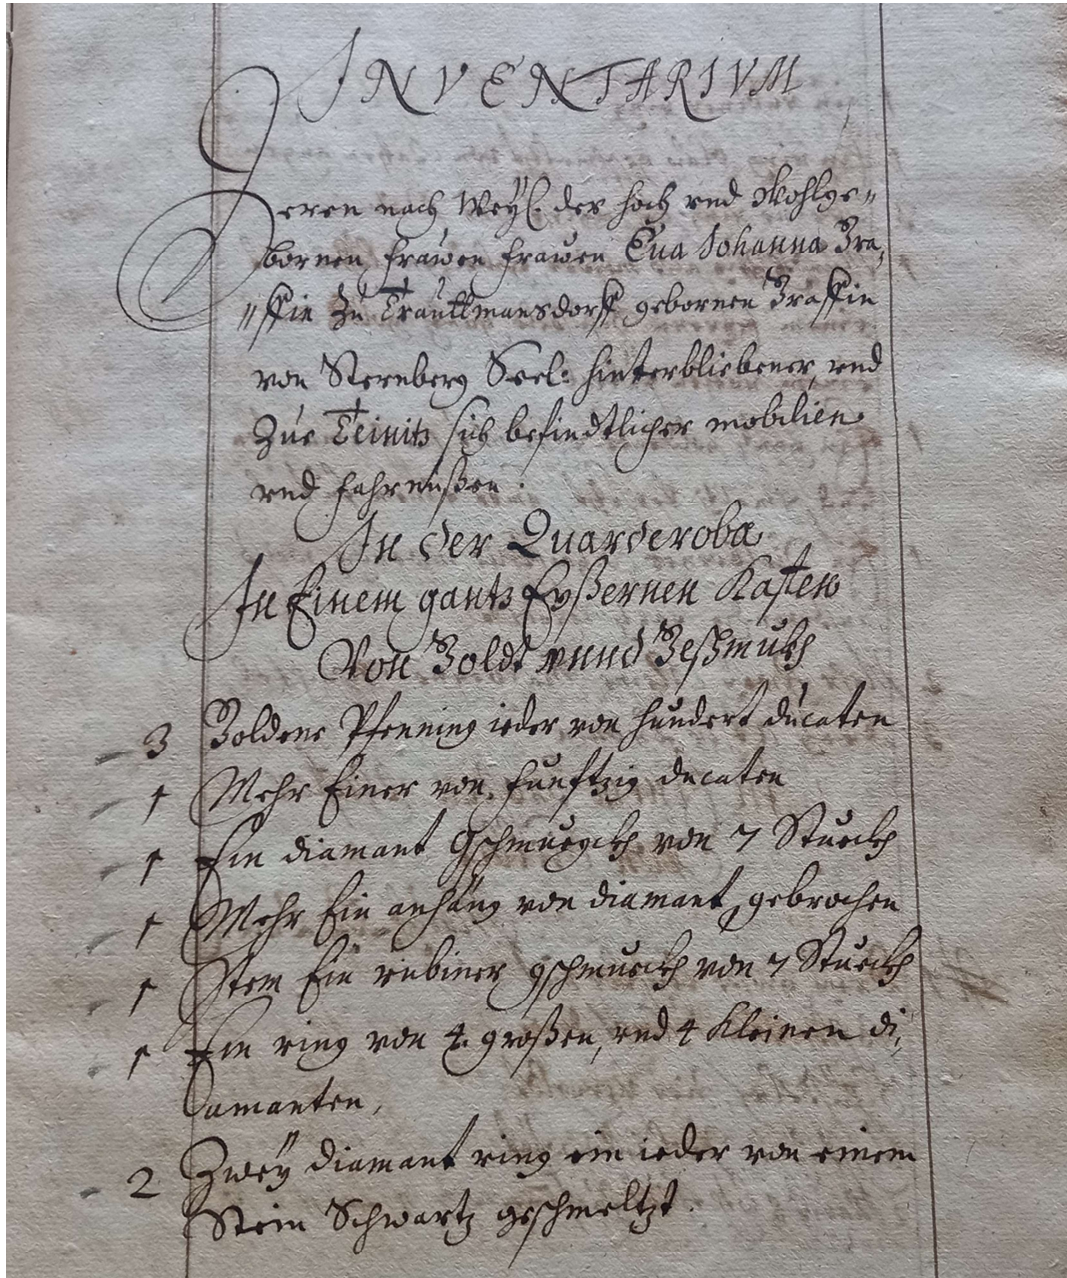 INVENTARIVM
Deren nach Weyl. der hoch vnd Wohlge„
bornen Frawen Frawen Eua Johanna Gra,
„ffin zu Trauttmansdorff gebornen Graffin
von Sternberg Seel: hinterbliebener, vnd
Zue Teinitz sich befindtlicher mobilien
vnd fahrnußen.
In der Quarderoba
In Einem gantz Eyßernen Kasten
Von Goldt vnnd Geschmukh
3 Goldene Pfenning ieder von hundert ducaten
1 Mehr Einer von funfftzig ducaten
1 Ein diamant Gschmuckh von 7 Stuckh
1 Mehr Ein anhäng von diamant, gebrochen
1 Item Ein rubiner gschmuckh von 7 Stuckh
1 Ein ring von 4. großen, vnd 4 Kleinen di,
amanten,
2 Zwey diamant ring ein ieder von einem
Stein Schwartz geschmeltzt.